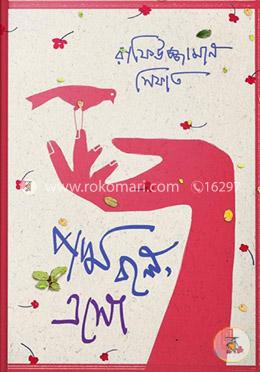 রাফিউজ্জামান
সিফাত
www.rokomari.com 16297
পদ্ম বলে,
এসো